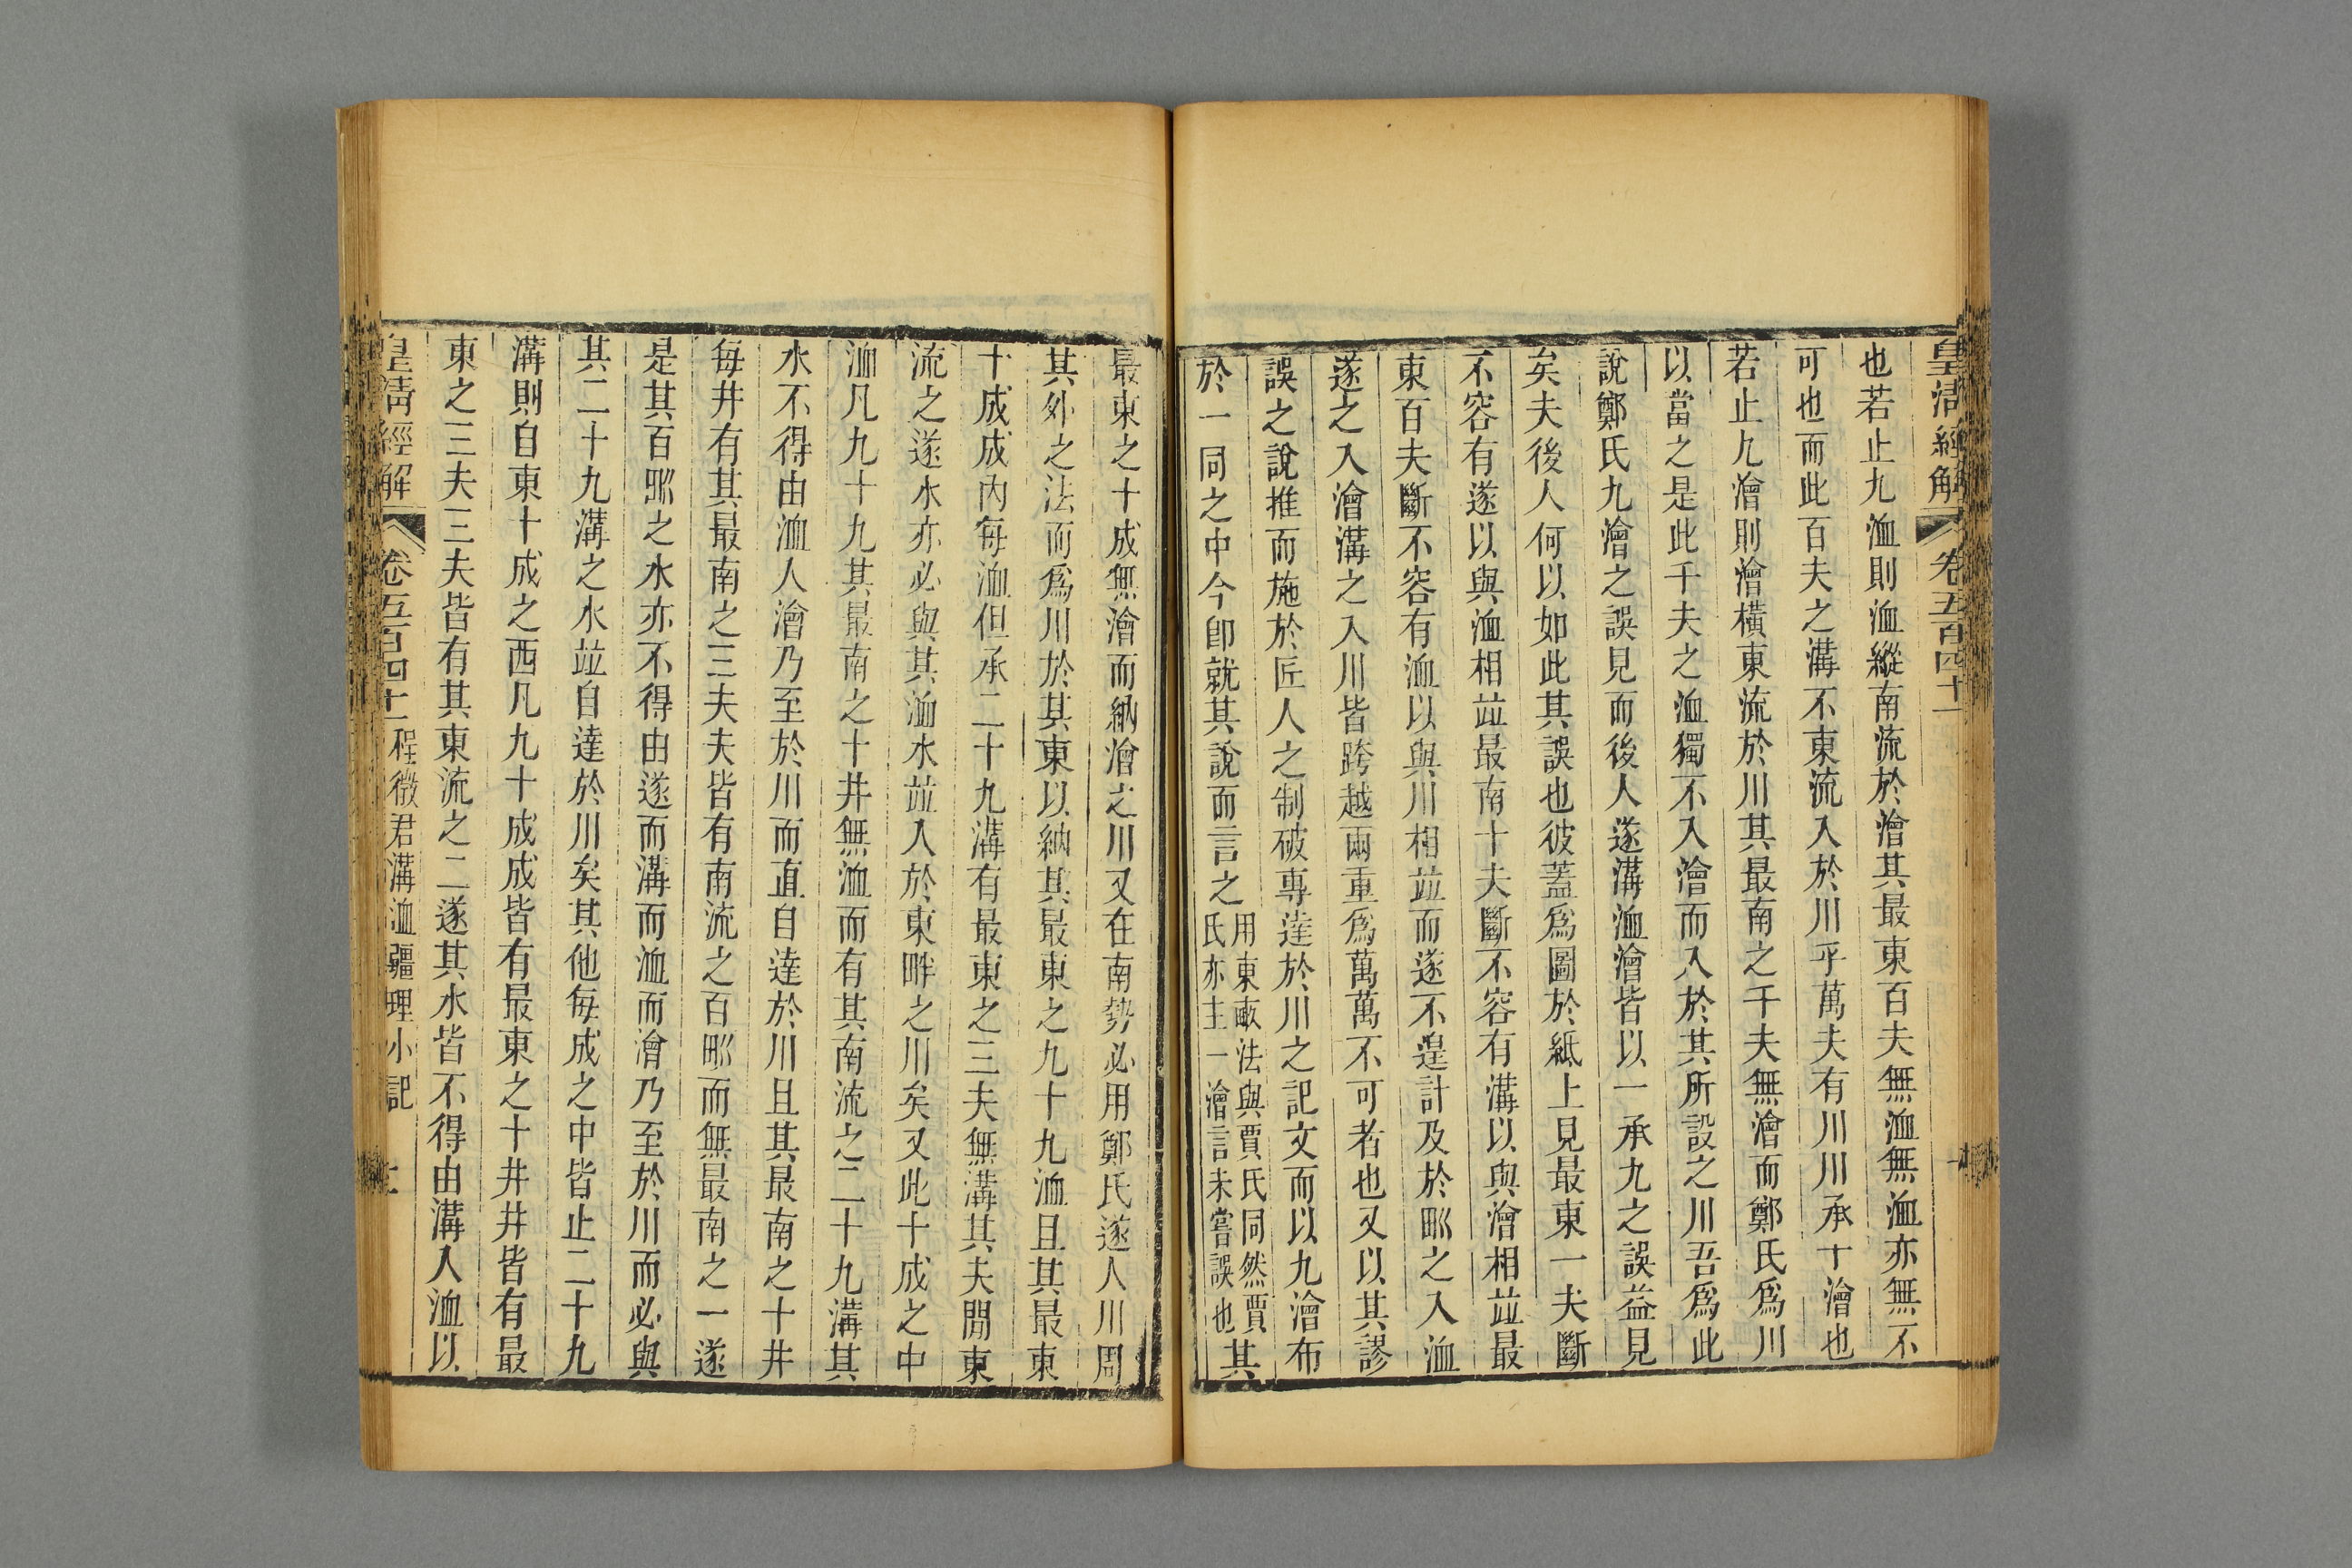 皇清經解 卷五百四十一
也若止九洫則洫縱南流於澮其最東百夫無洫無洫亦無不
可也而此百夫之溝不東流入於川乎萬夫有川川承十澮也
若止九澮則澮橫東流於川其最南之千夫無澮而鄭氏爲川
以當之是此千夫之洫獨不入澮而入於其所設之川吾爲此
說鄭氏九澮之誤見而後人遂溝洫澮皆以一承九之誤益見
矣夫後人何以如此其誤也彼蓋爲圖於紙上見最東一夫斷
不容有遂以與洫相竝最南十夫斷不容有溝以與澮相竝最
東百夫斷不容有洫以與川相竝而遂不遑計及於甽之入洫
遂之入澮溝之入川皆跨越兩重爲萬萬不可者也又以其謬
誤之說推而施於匠人之制破專達於川之記文而以九澮布
於一同之中今卽就其說而言之用東畝法與賈氏同然賈氏亦主一澮言未嘗誤也其
最東之十成無澮而納澮之川又在南勢必用鄭氏遂人川周
其外之法而爲川於其東以納其最東之九十九洫且其最東
十成成內每洫但承二十九溝有最東之三夫無溝其夫閒東
流之遂水亦必與其洫水竝入於東畔之川矣又此十成之中
洫凡九十九其最南之十井無洫而有其南流之二十九溝其
水不得由洫入澮乃至於川而直自達於川且其最南之十井
每井有其最南之三夫夫皆有南流之百甽而無最南之一遂
是其百甽之水亦不得由遂而溝而洫而澮乃至於川而必與
其二十九溝之水竝自達於川矣其他每成之中皆止二十九
溝則自東十成之西凡九十成成皆有最東之十井井皆有最
東之三夫三夫皆有其東流之二遂其水皆不得由溝入洫以
皇清經解 卷五百四十一 程徵君溝洫疆理小記